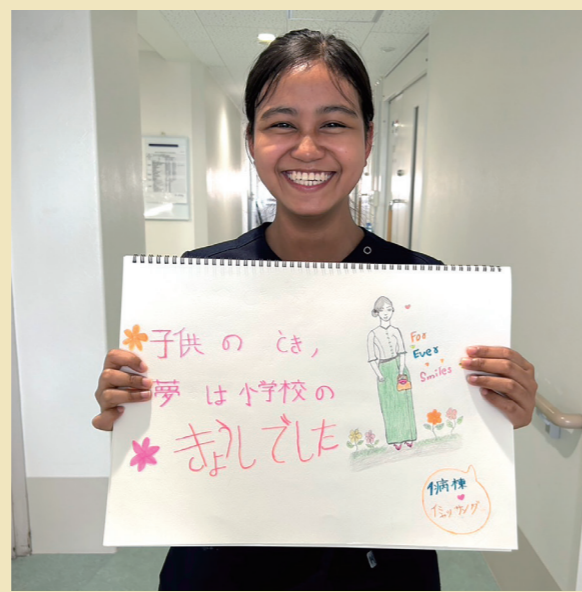 子供の とき,
夢 は小学校の
きょうしでした
For
Ever
Smiles
1病棟